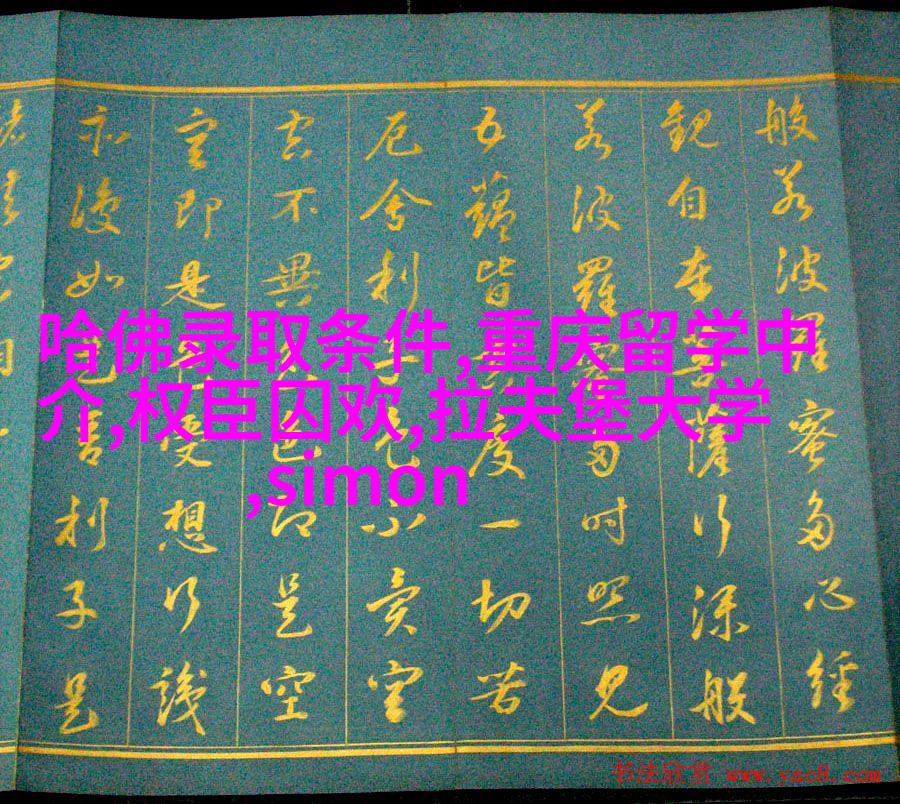 般若波羅蜜多心經
觀自在菩薩行深般
若波羅蜜多時照見
五蘊皆空度一切苦
厄舍利子色不異空
空不異色色即是空
空即是色受想行識
亦復如是舍利子是
哈佛录取条件,重庆留学中
介,权臣囚欢,拉夫堡大学
,simon
书法欣赏 www.yac8.com